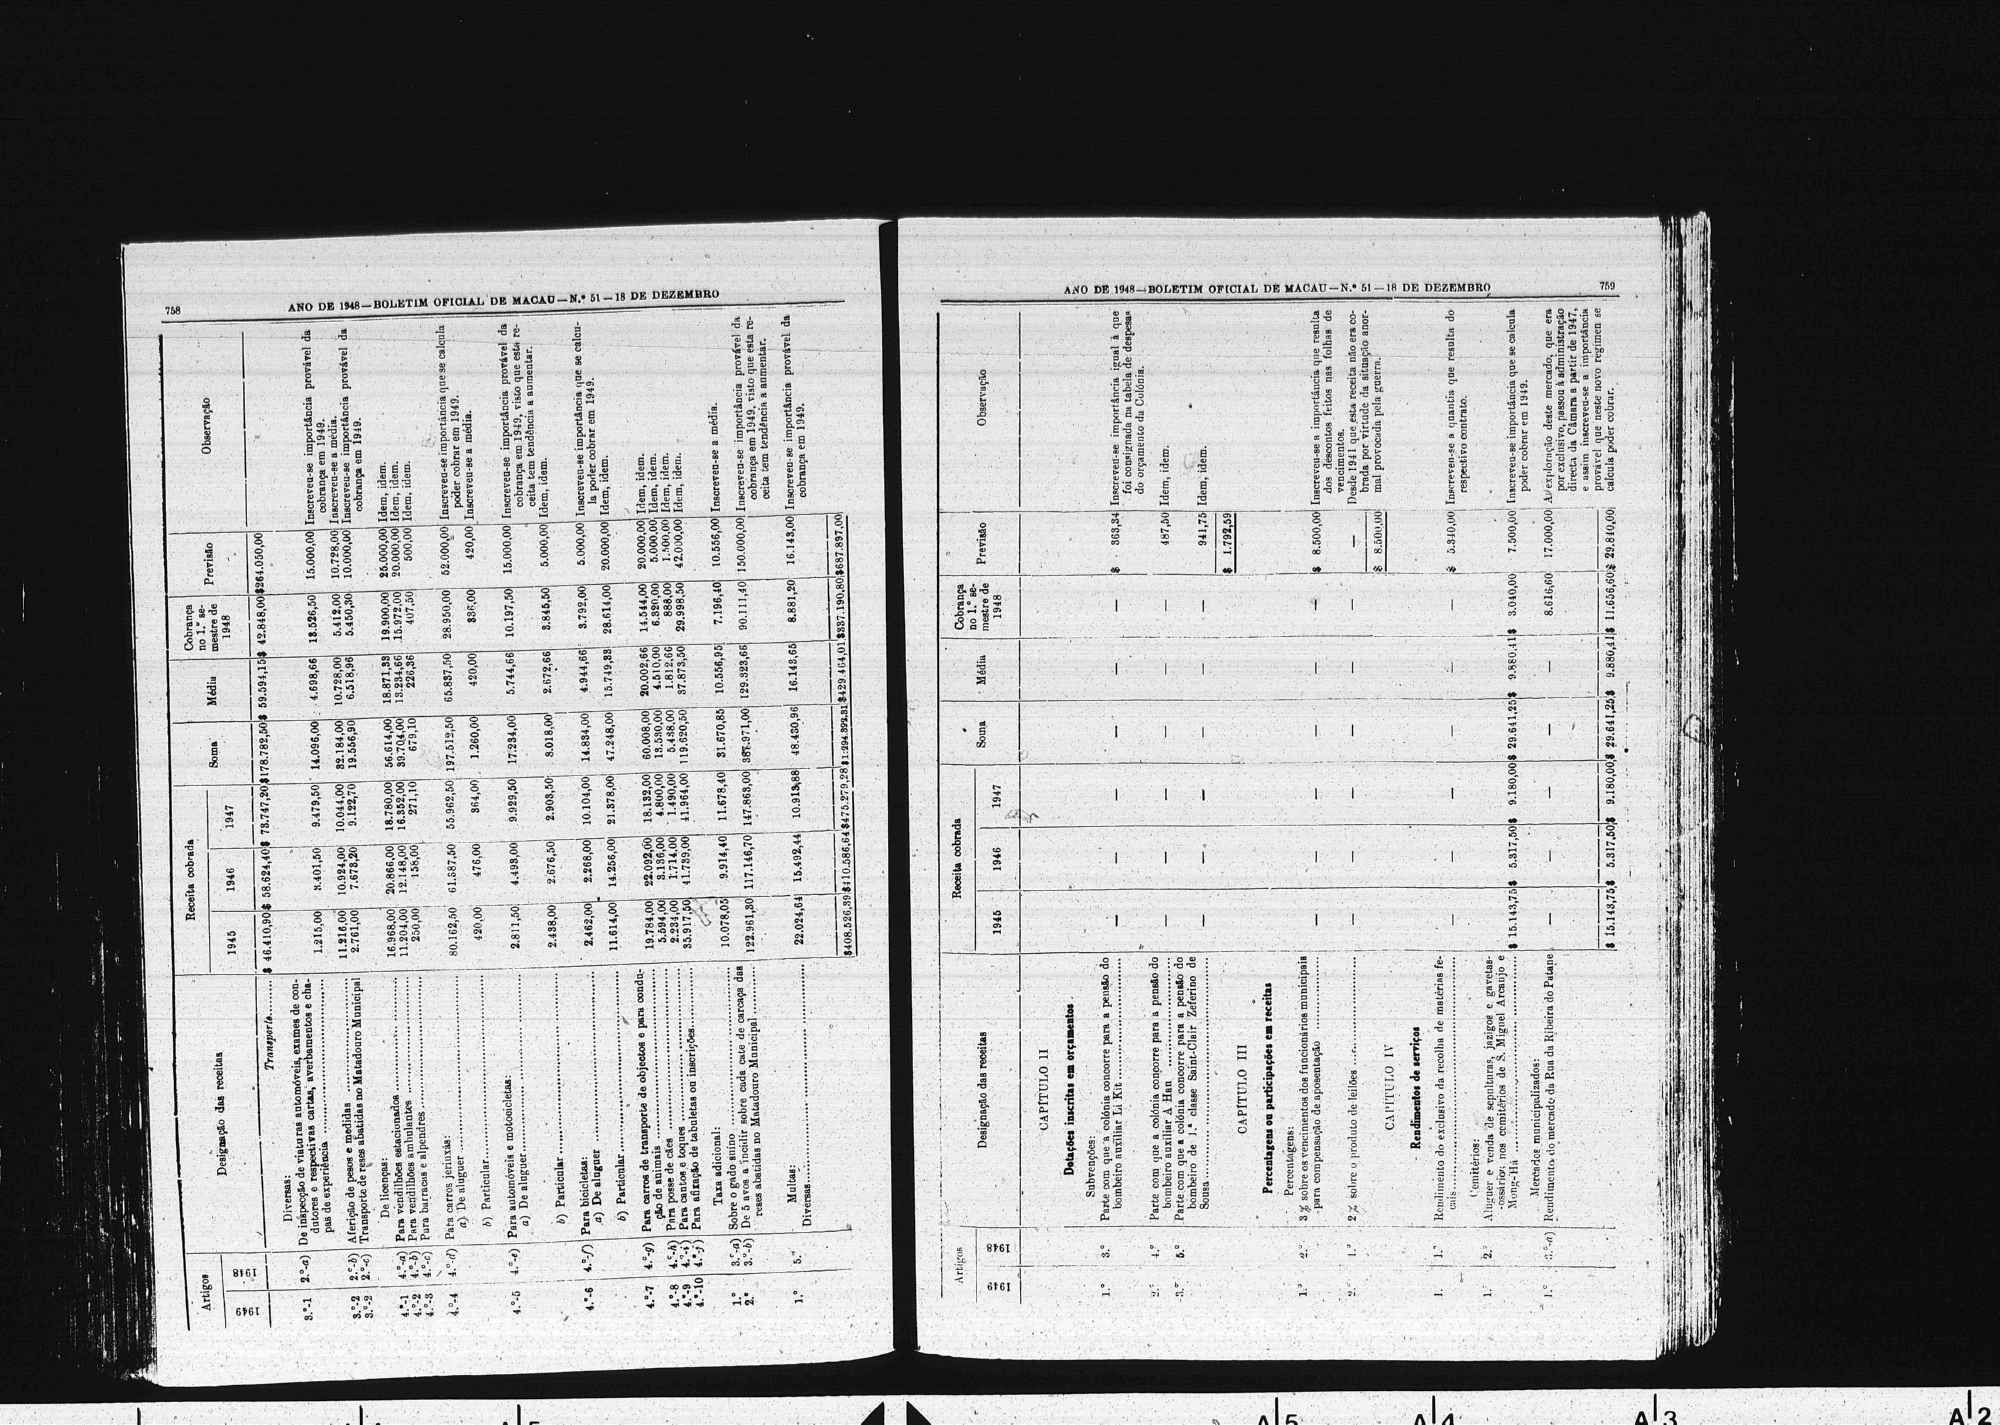 758
ANO DE 1948—BOLETIM OFICIAL DE MACAU—N.º 51—18 DE DEZEMBRO
Artigos
1949
1948
Designação das receitas
Receita cobrada
1945
1946
1947
Soma
Média
Cobrança no 1.º semestre de 1948
Previsão
Observação
Transporte......... $ 46.410,90 $ 58.624,40 $ 73.747,20 $178.782,50 $ 59.594,15 $ 42.848,00 $264.050,00
Diversas:
3.º-1 2.º-a) De inspecção de viaturas automóveis, exames de con-
dutores e respectivas cartas, averbamentos e cha-
pas de experiência ......... 1.215,00 3.401,50 9.479,50 14.096,00 4.698,66 13.526,50 15.000,00 Inscreveu-se importância provável da
cobrança em 1949.
3.º-2 2.º-b) Aferição de pesos e medidas ......... 11.216,00 10.924,00 10.044,00 32.184,00 10.728,00 5.412,00 10.728,00 Inscreveu-se a média.
3.º-2 2.º-c) Transporte de reses abatidas no Matadouro Municipal 2.761,00 7.673,20 9.122,70 19.556,90 6.518,96 5.450,30 10.000,00 Inscreveu-se importância provável da
cobrança em 1949.
De licenças:
4.º-1 4.º-a) Para vendilhões estacionados ......... 16.968,00 20.866,00 18.780,00 56.614,00 18.871,33 19.900,00 25.000,00 Idem, idem.
4.º-2 4.º-b) Para vendilhões ambulantes ......... 11.204,00 12.148,00 16.352,00 39.704,00 13.234,66 15.972,00 20.000,00 Idem, idem.
4.º-3 4.º-c) Para barracas e alpendres ......... 250,00 158,00 271,10 679,10 226,36 407,50 500,00 Idem, idem.
4.º-4 4.º-d) Para carros jerinxás:
a) De aluguer ......... 80.162,50 61.387,50 55.962,50 197.512,50 65.837,50 28.950,00 52.000,00 Inscreveu-se importância que se calcula
poder cobrar em 1949.
b) Particular ......... 420,00 476,00 364,00 1.260,00 420,00 336,00 420,00 Inscreveu-se a média.
4.º-5 4.º-e) Para automóveis e motocicletas:
a) De aluguer ......... 2.811,50 4.493,00 9.929,50 17.234,00 5.744,66 10.197,50 15.000,00 Inscreveu-se importância provável da
cobrança em 1949, visto que esta re-
ceita tem tendência a aumentar.
b) Particular ......... 2.438,00 2.676,50 2.903,50 8.018,00 2.672,66 3.845,50 5.000,00 Idem, idem.
4.º-6 4.º-f) Para bicicletas:
a) De aluguer ......... 2.462,00 2.268,00 10.104,00 14.834,00 4.944,66 3.792,00 5.000,00 Inscreveu-se importância que se calcu-
la poder cobrar em 1949.
b) Particular ......... 11.614,00 14.256,00 21.378,00 47.248,00 15.749,33 28.614,00 20.000,00 Idem, idem.
4.º-7 4.º-g) Para carros de transporte de objectos e para condu-
ção de animais ......... 19.784,00 22.092,00 18.132,00 60.008,00 20.002,66 14.544,00 20.000,00 Idem, idem.
4.º-8 4.º-h) Para posse de cães ......... 5.594,00 3.136,00 4.800,00 13.530,00 4.510,00 6.320,00 5.000,00 Idem, idem.
4.º-9 4.º-i) Para cantos e toques ......... 2.234,00 1.714,00 1.490,00 5.438,00 1.812,66 888,00 1.500,00 Idem, idem.
4.º-10 4.º-j) Para afixação de tabuletas ou inscrições ......... 35.917,50 41.739,00 41.964,00 119.620,50 37.873,50 29.998,50 42.000,00 Idem, idem.
Taxa adicional:
1.º 3.º-a) Sobre o gado suíno ......... 10.078,05 9.914,40 11.678,40 31.670,85 10.556,95 7.196,40 10.556,00 Inscreveu-se a média.
2.º 3.º-b) De 5 avos a incidir sobre cada cate de carcaça das
reses abatidas no Matadouro Municipal ......... 122.961,30 117.146,70 147.863,00 387.971,00 129.323,66 90.111,40 150.000,00 Inscreveu-se importância provável da
cobrança em 1949, visto que esta re-
ceita tem tendência a aumentar.
Multas:
1.º 5.º Diversas......... 22.024,64 15.492,44 10.913,88 48.430,96 16.143,65 8.881,20 16.143,00 Inscreveu-se importância provável da
cobrança em 1949.
$408.526,39 $410.586,64 $475.279,28 $1:294.392,31 $429.464,01 $337.190,80 $687.897,00
ANO DE 1948—BOLETIM OFICIAL DE MACAU—N.º 51—18 DE DEZEMBRO
759
Artigos
1949
1948
Designação das receitas
Receita cobrada
1945
1946
1947
Soma
Média
Cobrança no 1.º semestre de 1948
Previsão
Observação
CAPÍTULO II
Dotações inscritas em orçamentos
Subvenções:
1.º 3.º Parte com que a colónia concorre para a pensão do
bombeiro auxiliar Li Kit ......... — — — — — — $ 363,34 Inscreveu-se importância igual à que
foi consignada na tabela de despesas
do orçamento da Colónia.
2.º 4.º Parte com que a colónia concorre para a pensão do
bombeiro auxiliar A Han ......... — — — — — — 487,50 Idem, idem.
3.º 5.º Parte com que a colónia concorre para a pensão do
bombeiro de 1.ª classe Saint-Clair Zeferino de
Sousa ......... — — — — — — 941,75 Idem, idem.
$ 1.792,59
CAPÍTULO III
Percentagens ou participações em receitas
Percentagens:
1.º 2.º 3 % sobre os vencimentos dos funcionários municipais
para compensação de aposentação ......... — — — — — — $ 8.500,00 Inscreveu-se a importância que resulta
dos descontos feitos nas folhas de
vencimentos.
2.º 1.º 2 % sobre o produto de leilões ......... — — — — — — — Desde 1941 que esta receita não era co-
brada por virtude da situação anor-
mal provocada pela guerra.
$ 8.500,00
CAPÍTULO IV
Rendimentos de serviços
1. 1.º Rendimento do exclusivo da recolha de matérias fe-
cais ......... — — — — — — $ 5.340,00 Inscreveu-se a quantia que resulta do
respectivo contrato.
Cemitérios:
1.º 2.º Aluguer e venda de sepulturas, jazigos e gavetas-
-ossários nos cemitérios de S. Miguel Arcanjo e
Mong-Há ......... $ 15.143,75 $ 5.317,50 $ 9.180,00 $ 29.641,25 $ 9.880,41 $ 3.040,00 7.500,00 Inscreveu-se importância que se calcula
poder cobrar em 1949.
Mercados municipalizados:
1.º 3.º-a) Rendimento do mercado da Rua da Ribeira do Patane — — — — — 8.616,60 17.000,00 A exploração deste mercado, que era
por exclusivo, passou à administração
directa da Câmara a partir de 1947,
e assim inscreveu-se a importância
provável que neste novo regimen se
calcula poder cobrar.
$ 15.143,75 $ 5.317,50 $ 9.180,00 $ 29.641,25 $ 9.880,41 $ 11.656,60 $ 29.840,00
A 5
A 5
A 4
A 3
A 2